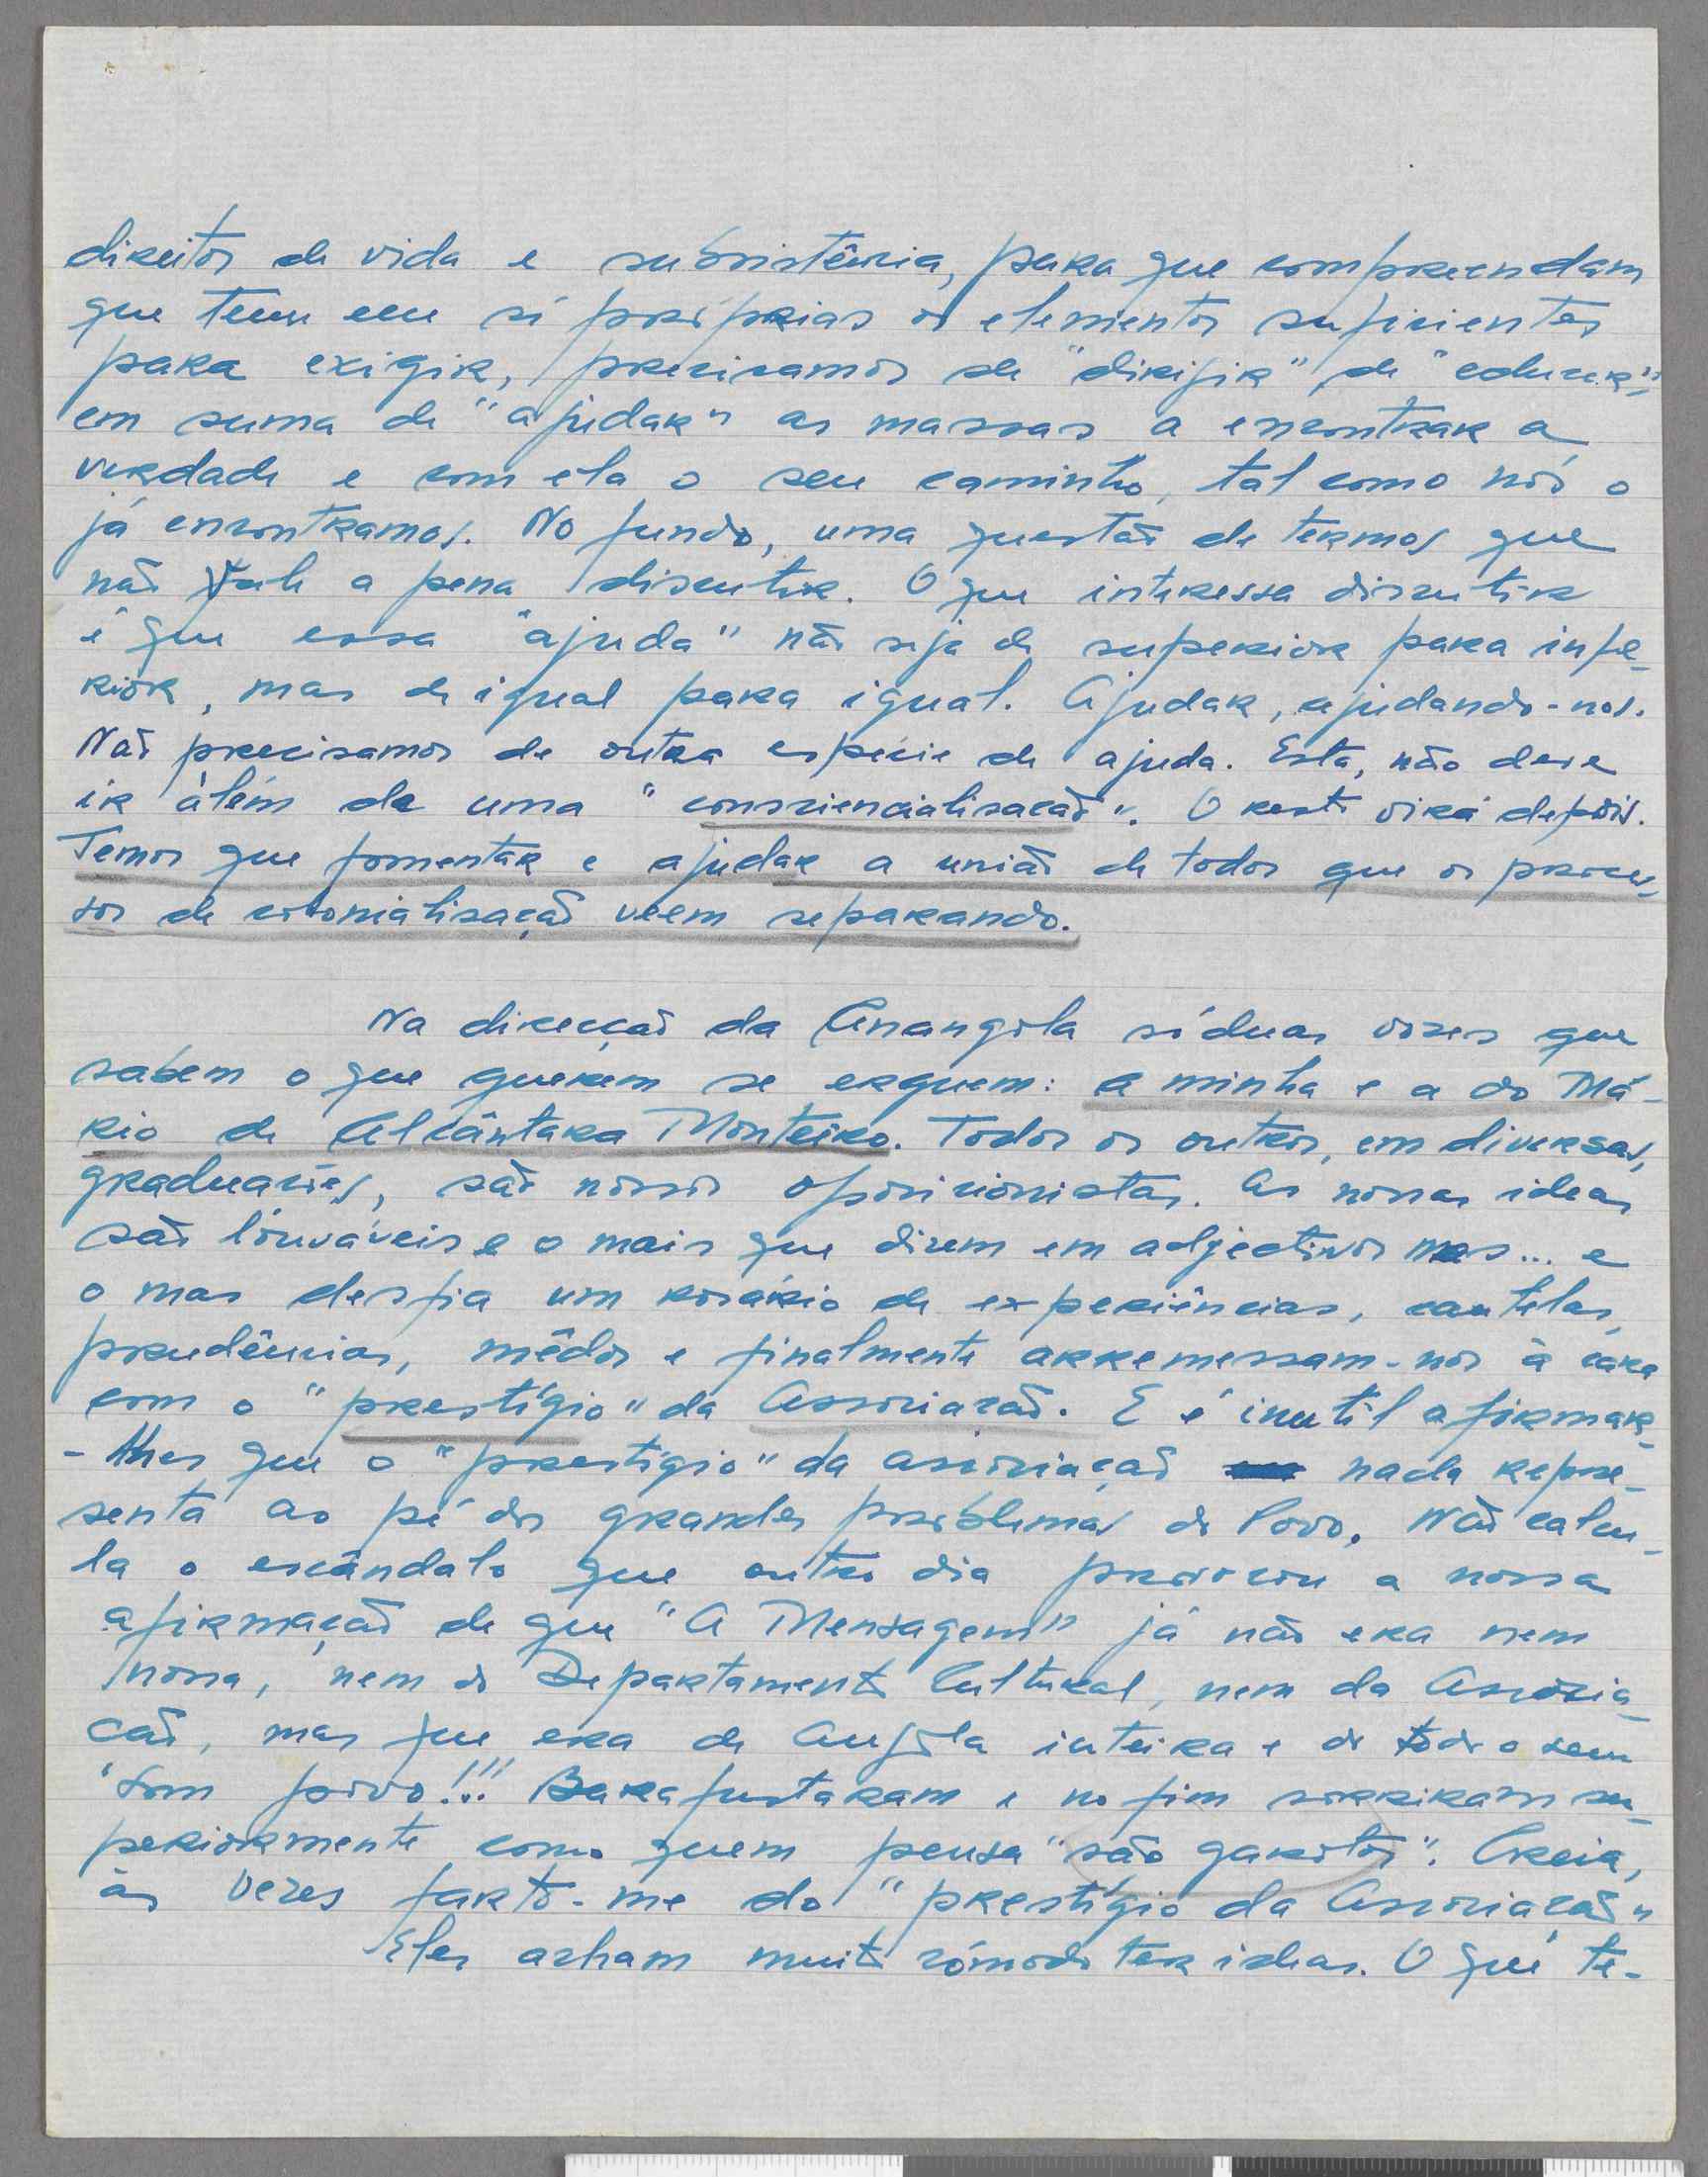 direitos de vida e subsistência, para que compreendam
que teem em si próprias os elementos suficientes
para exigir, precisamos de "dirigir" de "educar",
em suma de "ajudar" as massas a encontrar a
verdade e com ela o seu caminho, tal como nós o
já encontramos. No fundo, uma questão de termos que
não vale a pena discutir. O que interessa discutir
é que essa "ajuda" não seja de superior para infe-
rior, mas de igual para igual. Ajudar, ajudando-nos.
Não precisamos de outra espécie de ajuda. Esta, não deve
ir àlém de uma "consciencialisação". O resto virá depois.
Temos que fomentar e ajudar a união de todos que os proces-
sos de colonialisação veem separando.
Na direcção da Anangola só duas vozes que
sabem o que querem se erguem: a minha e a do Má-
rio de Alcântara Monteiro. Todos os outros, em diversas,
graduações, são nossos oposicionistas. As nossas ideas
são louváveis e o mais que dizem em adjectivos mas... e
o mas desfia um rosário de experiências, cautelas,
prudências, mêdos e finalmente arremessam-nos à cara
com o "prestígio" da Associação. E é inutil afirmar-
-lhes que o "prestígio" da associação nada repre-
senta ao pé dos grandes problemas do Povo. Não calcu-
la o escândalo que outro dia provocou a nossa
afirmação de que "A Mensagem" já não era nem
nossa, nem do Departamento Cultural, nem da Associa-
ção, mas que era de Angola inteira e de todo o seu
bom povo!!! Barafustaram e no fim sorriram su-
periormente como quem pensa "são garotos". Creia,
às vezes farto-me do "prestígio da Associação"
Eles acham muito cómodo ter ideas. O que te-